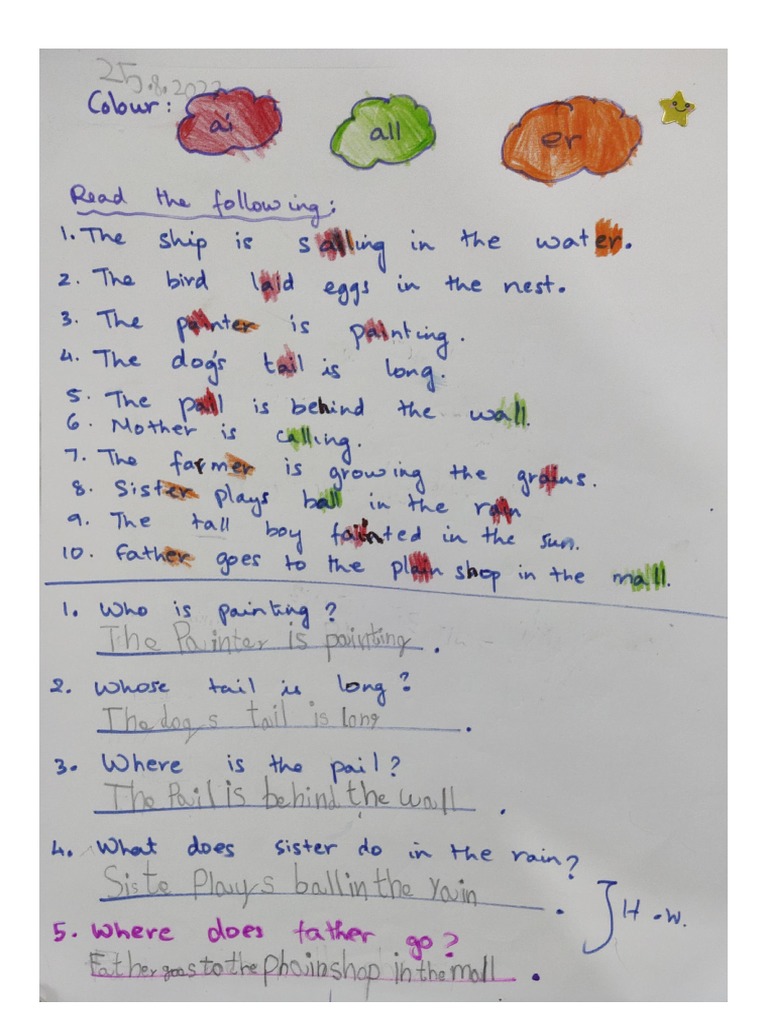 25.8.2022
Colour: ai all er
Read the following:
1. The ship is sailing in the water.
2. The bird laid eggs in the nest.
3. The painter is painting.
4. The dog's tail is long.
5. The pail is behind the wall.
6. Mother is calling.
7. The farmer is growing the grains.
8. Sister plays ball in the rain
9. The tall boy fainted in the sun.
10. Father goes to the plain shop in the mall.
1. Who is painting?
The Painter is painting.
2. Whose tail is long?
The dog s tail is long.
3. Where is the pail?
The Pail is behind the wall.
4. What does sister do in the rain?
Siste Plays ball in the rain.
H.W.
5. Where does father go?
Father goes to the phain shop in the mall.